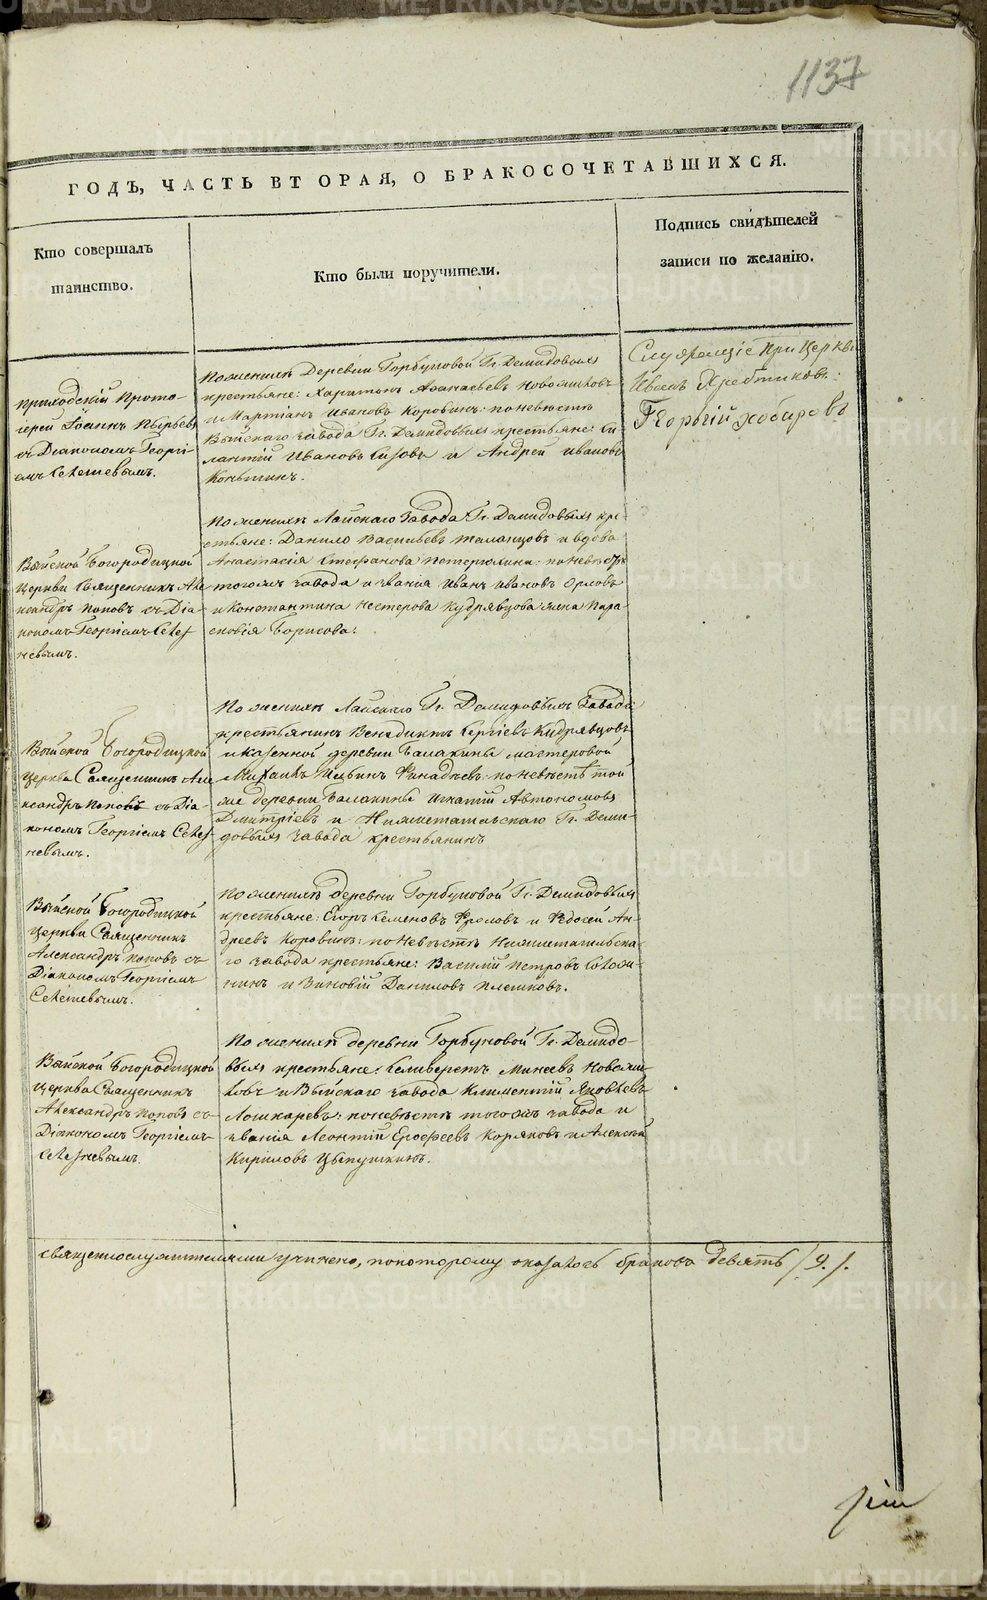 1137
ГОДЪ, ЧАСТЬ ВТОРАЯ, О БРАКОСОЧЕТАВШИХСЯ.
Кто совершалъ
таинство.
Кто были поручители.
Подпись свидѣтелей
записи по желанію.
Приходскій Прото-
іерей Іоаннъ Пырьевъ
съ Діакономъ Георгі-
емъ
По женихѣ Деревни Горбуновой Гг. Демидовыхъ
крестьяне: Харитонъ Аѳанасьевъ
и Мартіанъ Ивановъ Коровинъ: по невѣстѣ
Выйскаго завода Гг. Демидовыхъ крестьяне: Си-
лантій Ивановъ Сизовъ и Андрей Ивановъ
Служащіе при Церкви
Иванъ
Георгій
Выйской Богородицкой
церкви Священникъ Але-
ксандръ Поповъ съ Діа-
кономъ Георгіемъ
По женихѣ Лайскаго Завода Гг. Демидовыхъ кре-
стьяне: Данило Васильевъ и вдова
Анастасія Стефанова по невѣстѣ
тогожъ завода и званія Иванъ Ивановъ Орловъ
и Константина Нестерова Кудрявцова жена Пара-
сковія Борисова:
Выйской Богородицкой
церкви Священникъ Але-
ксандръ Поповъ съ Діа-
кономъ Георгіемъ
По женихѣ Лайскаго Гг. Демидовыхъ Завода
крестьянинъ Венедиктъ Сергіевъ Кудрявцовъ
и казенной деревни Балакины мастеровой
по невѣстѣ той
же деревни Балакины Игнатій Автономовъ
Дмитріевъ и Нижнетагильскаго Гг. Деми-
довыхъ завода крестьянинъ
Выйской Богородицкой
церкви Священникъ
Александръ Поповъ съ
Діакономъ Георгіемъ
По женихѣ деревни Горбуновой Гг. Демидовыхъ
крестьяне: Егоръ Семеновъ Фроловъ и Ѳедосей Ан-
дреевъ Коровинъ: по невѣстѣ Нижнетагильска-
го завода крестьяне: Василій Петровъ
и Зиновій Даниловъ Плешковъ.
Выйской Богородицкой
церкви Священникъ
Александръ Поповъ съ
Діакономъ Георгіемъ
По женихѣ деревни Горбуновой Гг. Демидо-
выхъ крестьяне: Селиверстъ Минеевъ
и Выйскаго завода Климентій Яковлевъ
Лошкаревъ: по невѣстѣ тогожъ завода и
званія Леонтій Ерофеевъ Коряковъ и Алексѣй
Кириловъ Цыпушкинъ.
священнослужителями учинено, по которому оказалось браковъ девять /9./.